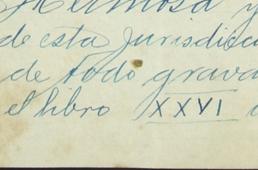 Hermosa y
de esta Jurisdicc
de todo grava
el libro XXVI